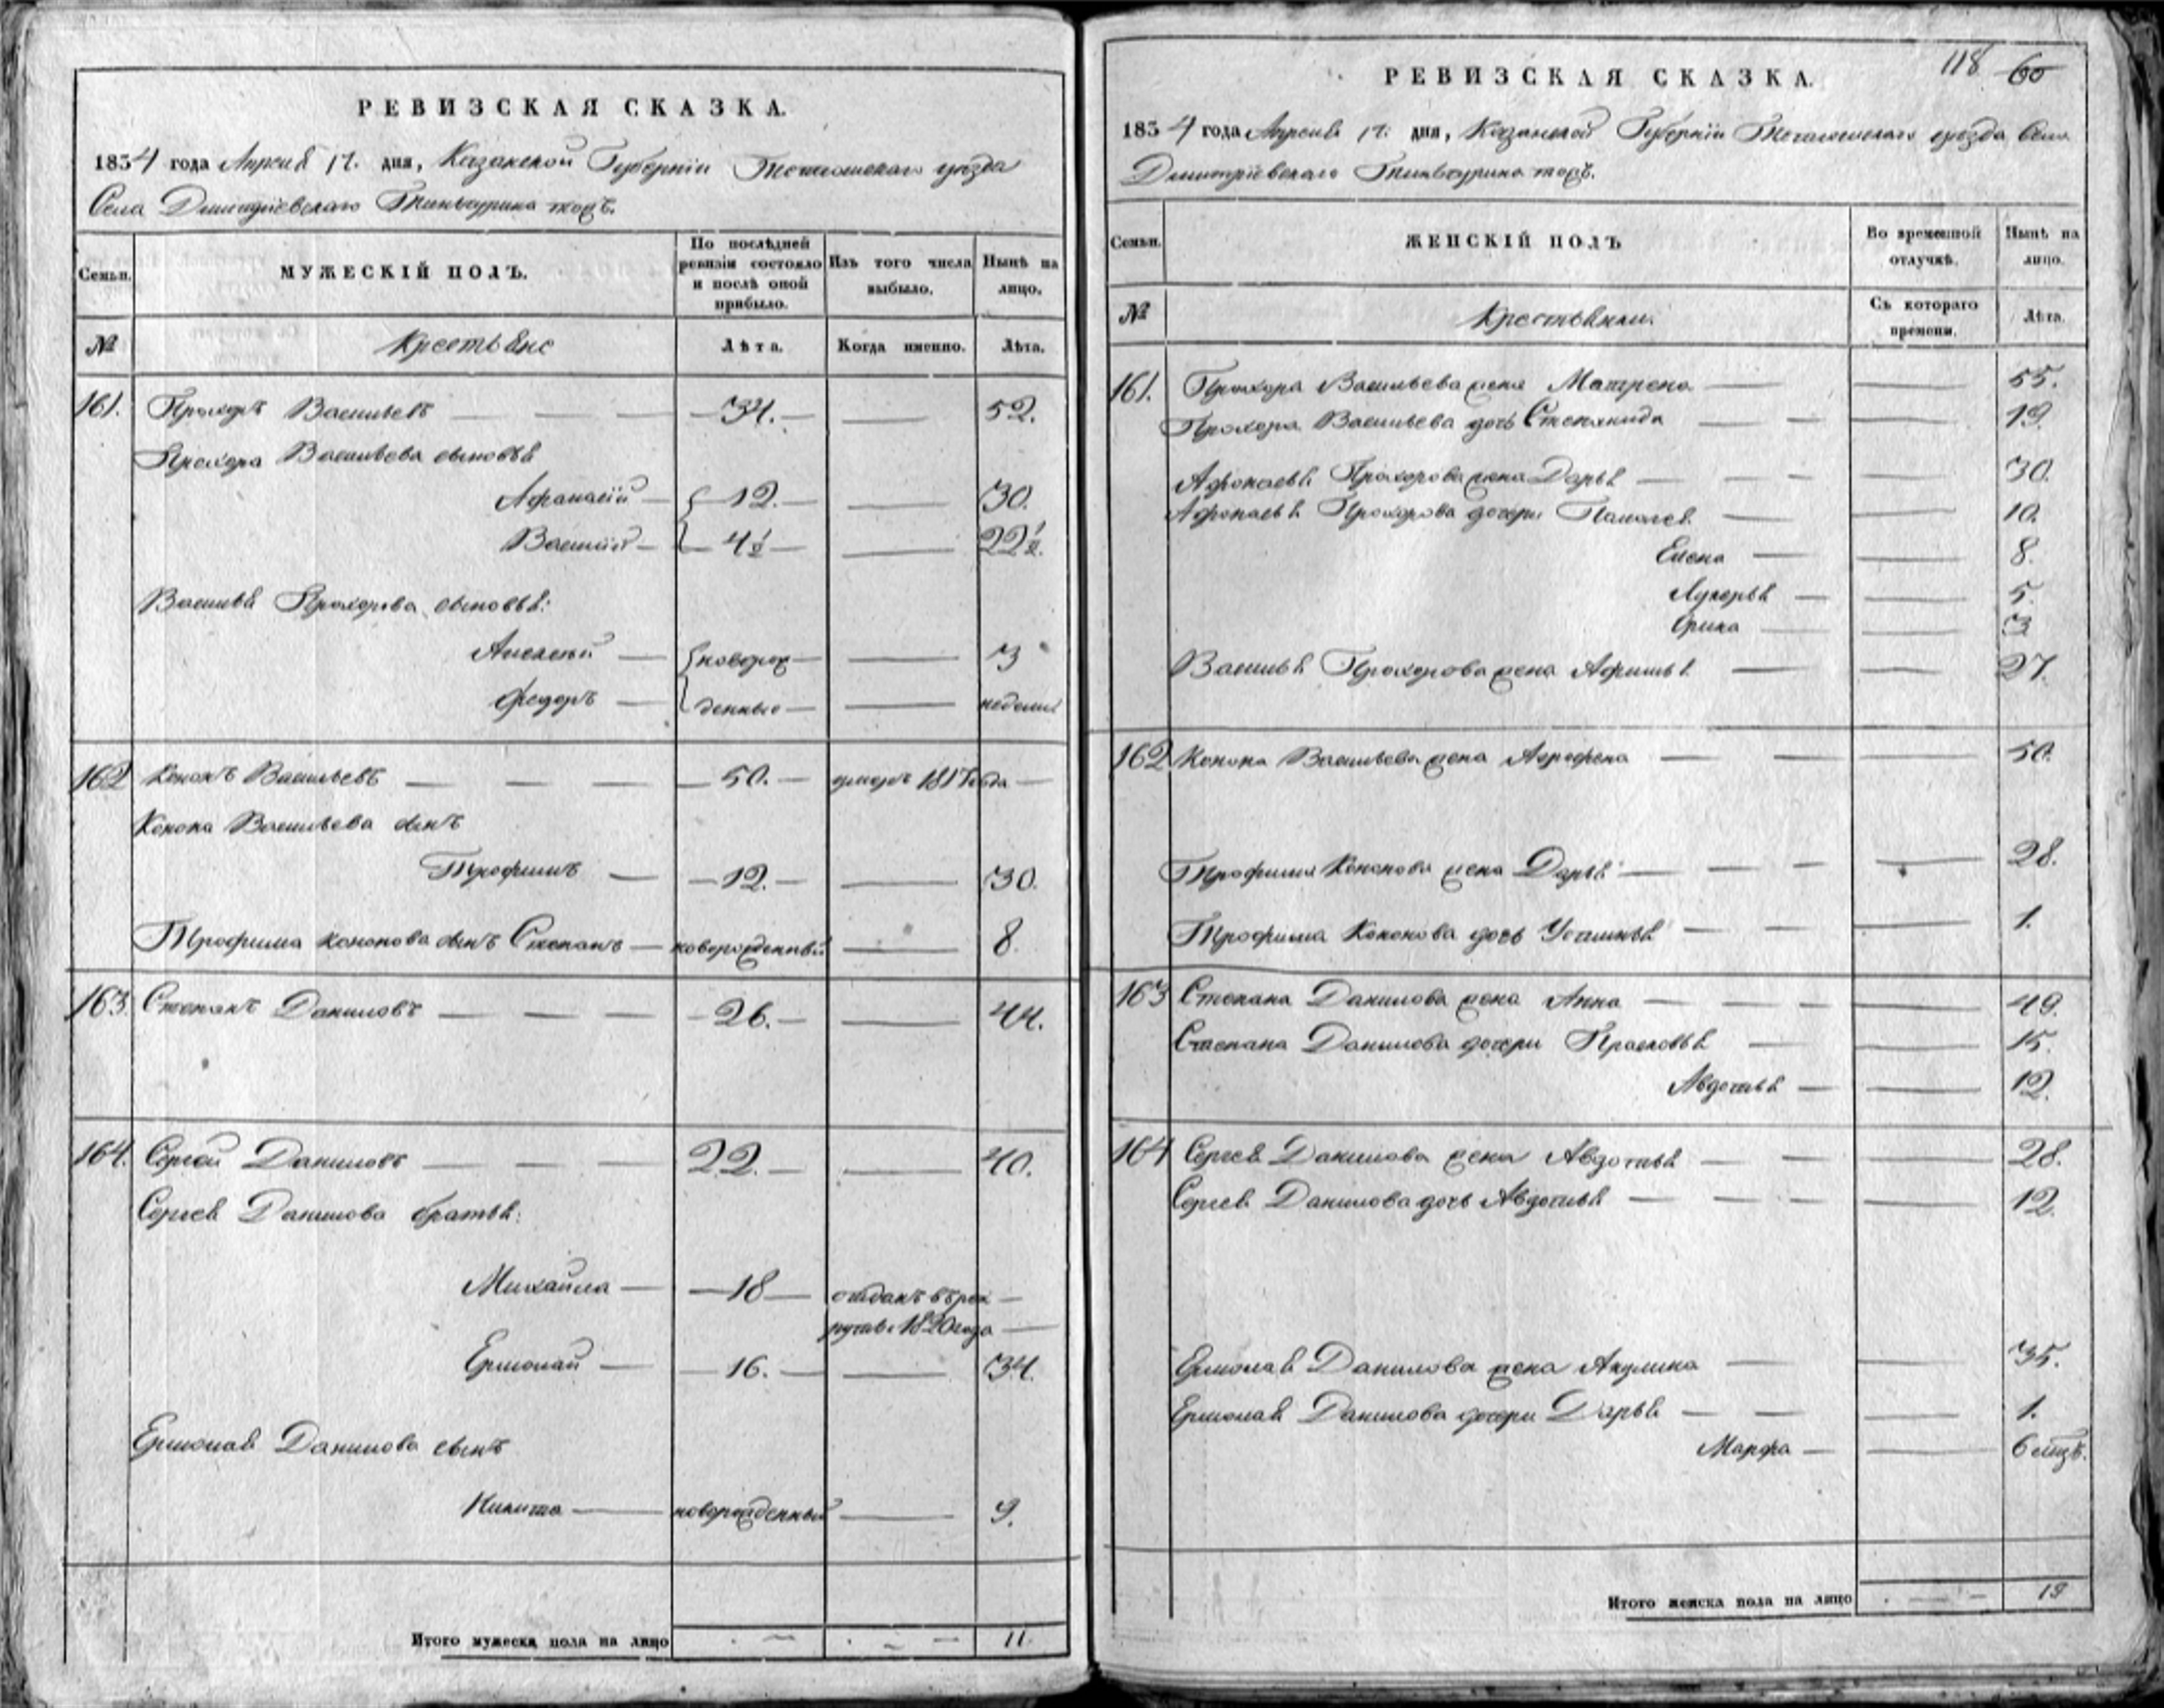 РЕВИЗСКАЯ СКАЗКА.
1834 года Апреля 17. дня, Казанской Губернiи Тетюшскаго уѣзда
Села Дмитрiевскаго Тиньбурина тожъ.
Семьи.
МУЖЕСКIЙ ПОЛЪ.
По послѣдней ревизiи состояло и послѣ оной прибыло.
Изъ того числа выбыло.
Нынѣ на лицо.
№
Крестьяне
Лѣта.
Когда именно.
Лѣта.
161. Прохоръ Васильевъ — 34. — 52.
Прохора Васильева сыновья
Афанасiй — 12. — 30.
Василiй — 4½ — 22½.
Василья Прохорова сыновья:
Алексей — новорож— 3
Федоръ — денные — недели
162 Кононъ Васильевъ — 50. — умеръ 1817 года —
Конона Васильева сынъ
Трофимъ — 12. — 30.
Трофима Кононова сынъ Степанъ — новорожденный — 8.
163. Степанъ Даниловъ — 26. — 44.
164. Сергей Даниловъ — 22. — 40.
Сергея Данилова братья:
Михайла — 18 — отданъ въ рек—
руты 1820 года —
Ермолай — 16. — 34.
Ермолая Данилова сынъ
Никита — новорожденный — 9.
Итого мужеска пола на лицо 11.
118 60
РЕВИЗСКАЯ СКАЗКА.
1834 года Апреля 17. дня, Казанской Губернiи Тетюшскаго уѣзда Села
Дмитрiевскаго Тиньбурина тожъ.
Семьи.
ЖЕНСКIЙ ПОЛЪ
Во временной отлучкѣ.
Нынѣ на лицо.
№
Крестьянки.
Съ котораго времени.
Лѣта.
161. Прохора Васильева жена Матрена — 55.
Прохора Васильева дочь Степанида — 19.
Афонасья Прохорова жена Дарья — 30.
Афонасья Прохорова дочери Пелагея — 10.
Елена — 8.
Лукерья — 5.
Орина — 3
Василья Прохорова жена Афимья — 27.
162 Конона Васильева жена Аграфена — 50.
Трофима Кононова жена Дарья — 28.
Трофима Кононова дочь Устинья — 1.
163 Степана Данилова жена Анна — 49.
Степана Данилова дочери Прасковья — 15.
Авдотья — 12.
164 Сергея Данилова жена Авдотья — 28.
Сергея Данилова дочь Авдотья — 12.
Ермолая Данилова жена Акулина — 35.
Ермолая Данилова дочери Дарья — 1.
Марфа — 6 мцъ.
Итого женска пола на лицо 19